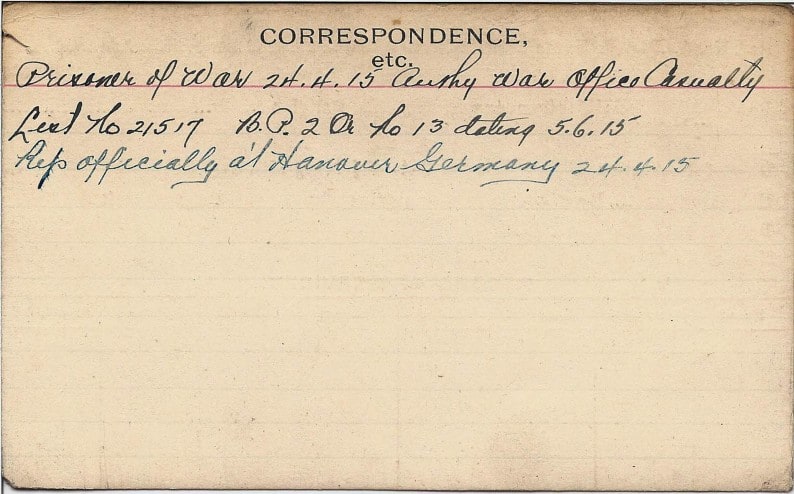 CORRESPONDENCE,
etc.
Prisoner of War 24.4.15 Authy War Office Casualty
List No 21517 B.P. 2 Or No 13 dating 5.6.15
Rep officially at Hanover Germany 24.4.15